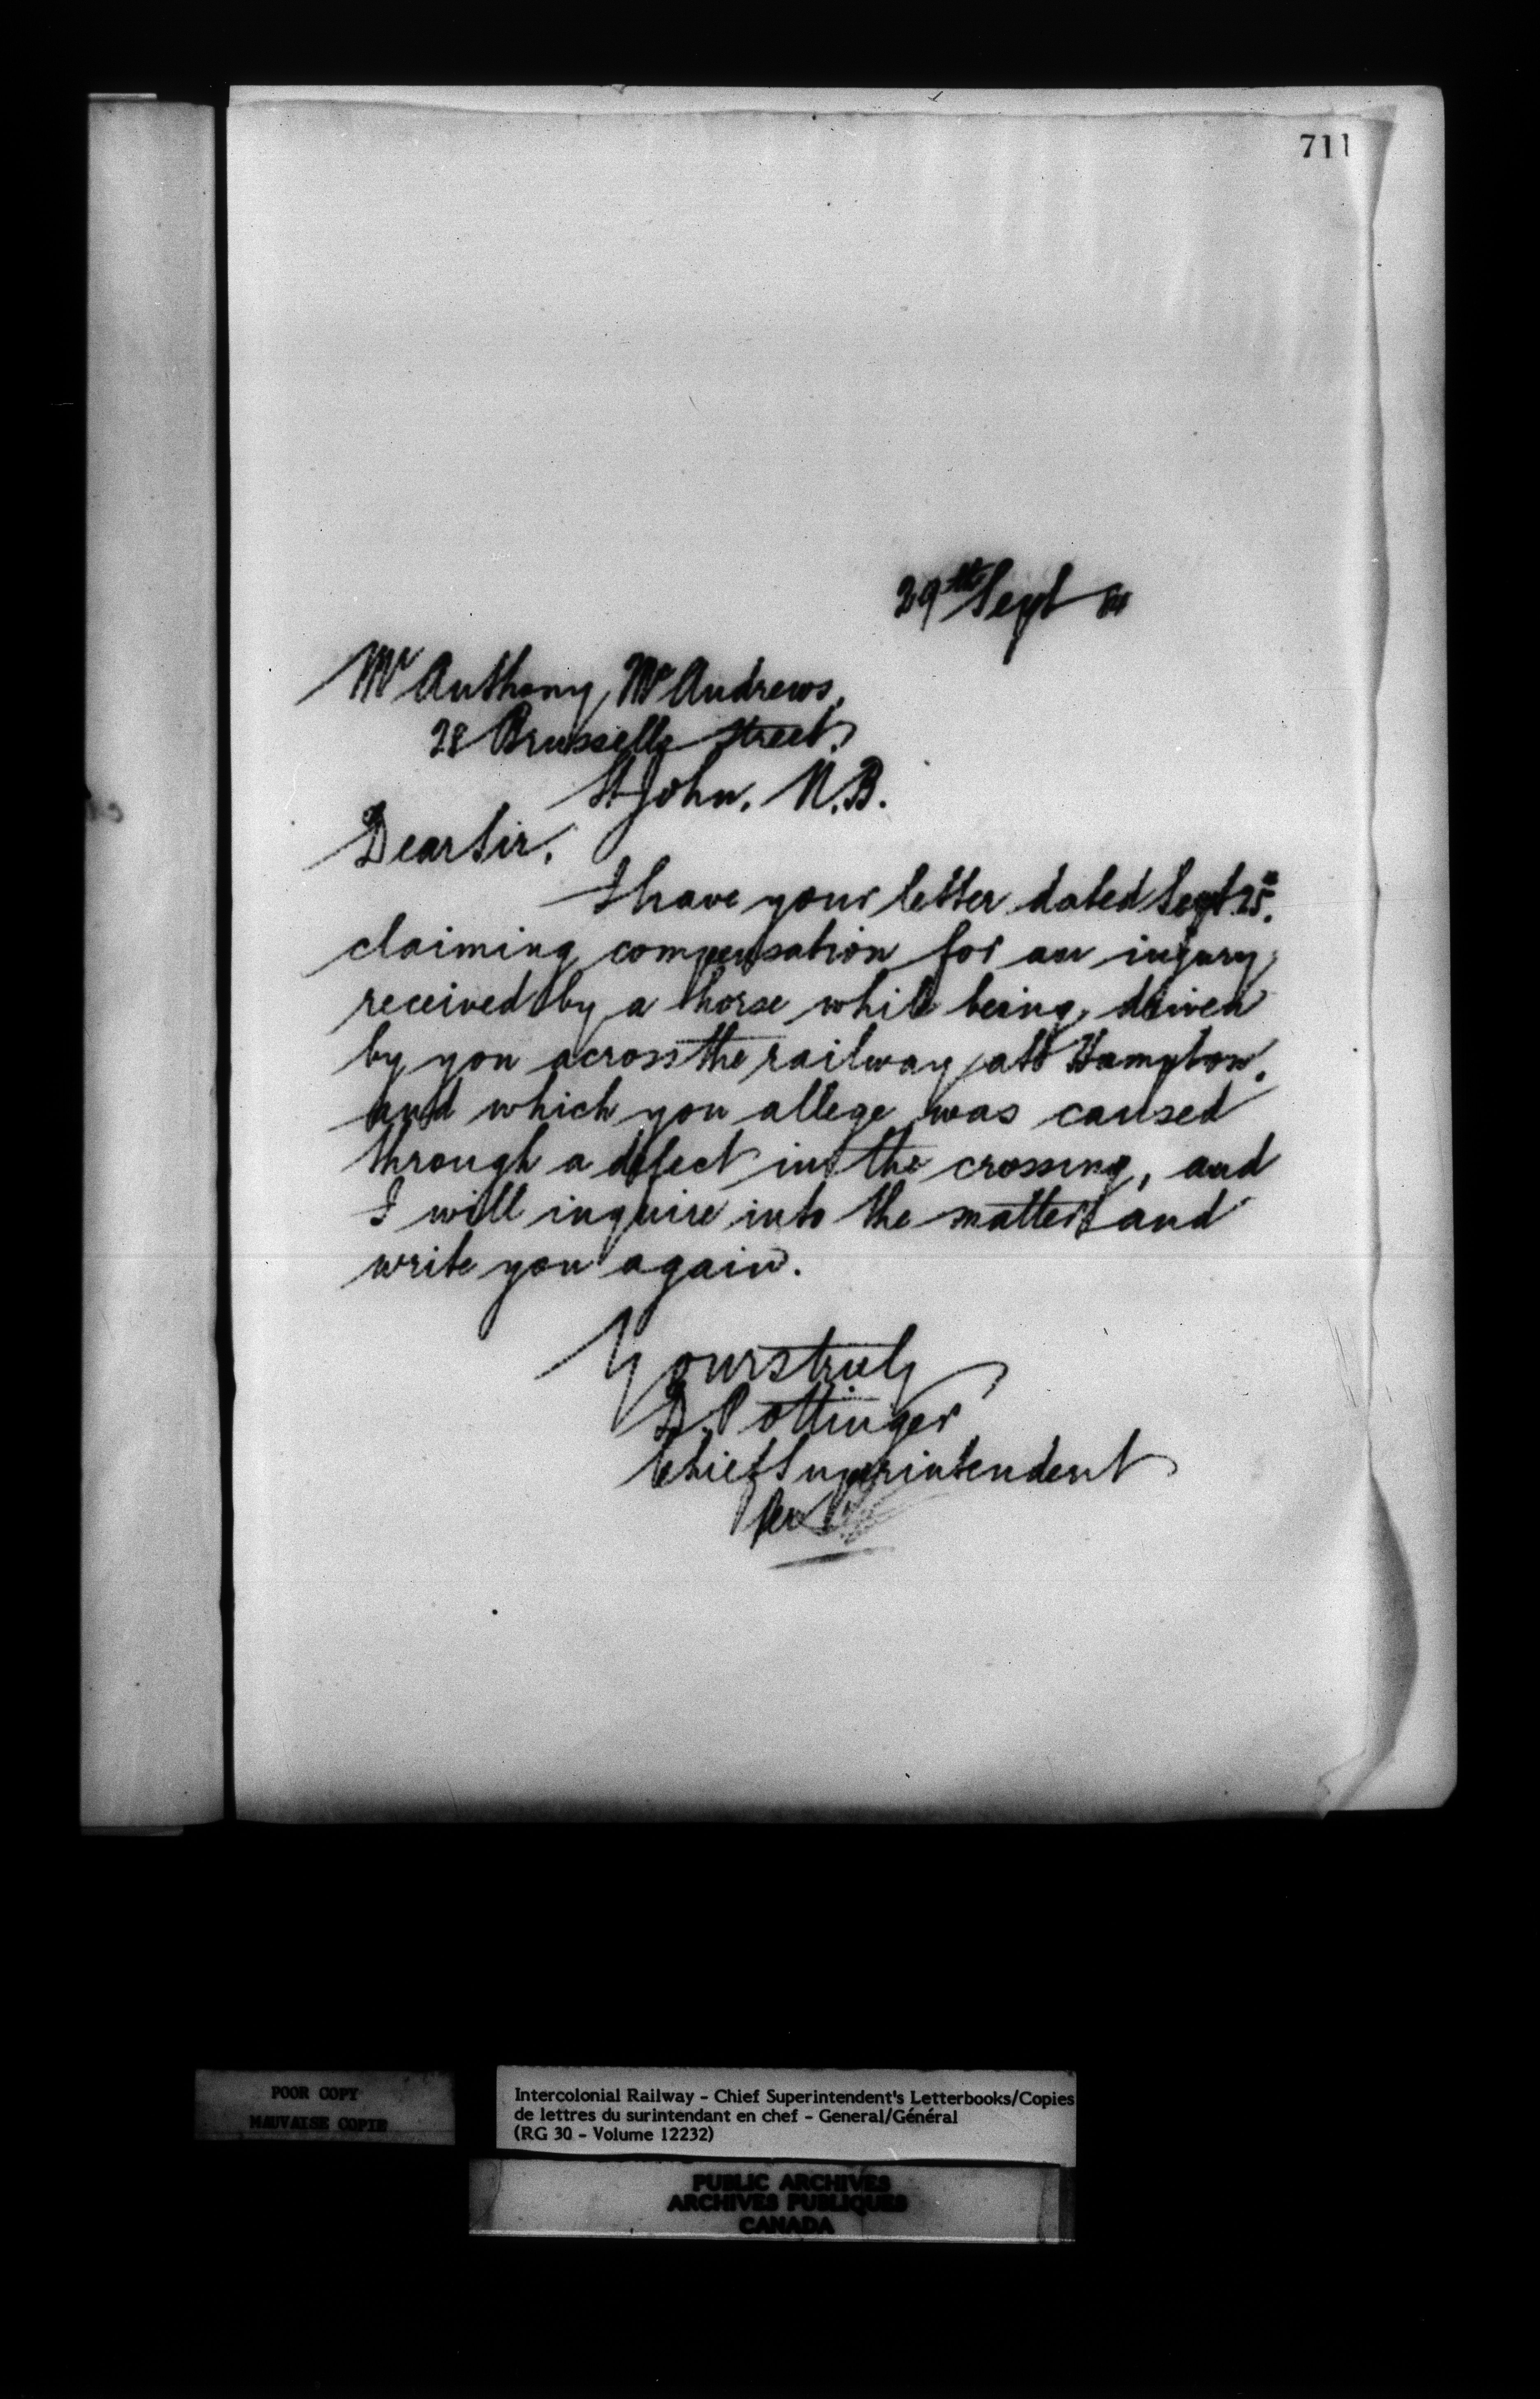 711
29th Sept
Mr Anthony McAndrews,
28 Brussells Street,
St John, N.B.
Dear Sir,
I have your letter dated Sept 25th
claiming compensation for an injury
received by a horse while being driven
by you across the railway at Hampton,
and which you allege was caused
through a defect in the crossing, and
I will inquire into the matter and
write you again.
Yours truly
D. Pottinger
Chief Superintendent
Per
POOR COPY
MAUVAISE COPIE
Intercolonial Railway - Chief Superintendent's Letterbooks/Copies
de lettres du surintendant en chef - General/Général
(RG 30 - Volume 12232)
PUBLIC ARCHIVES
ARCHIVES PUBLIQUES
CANADA